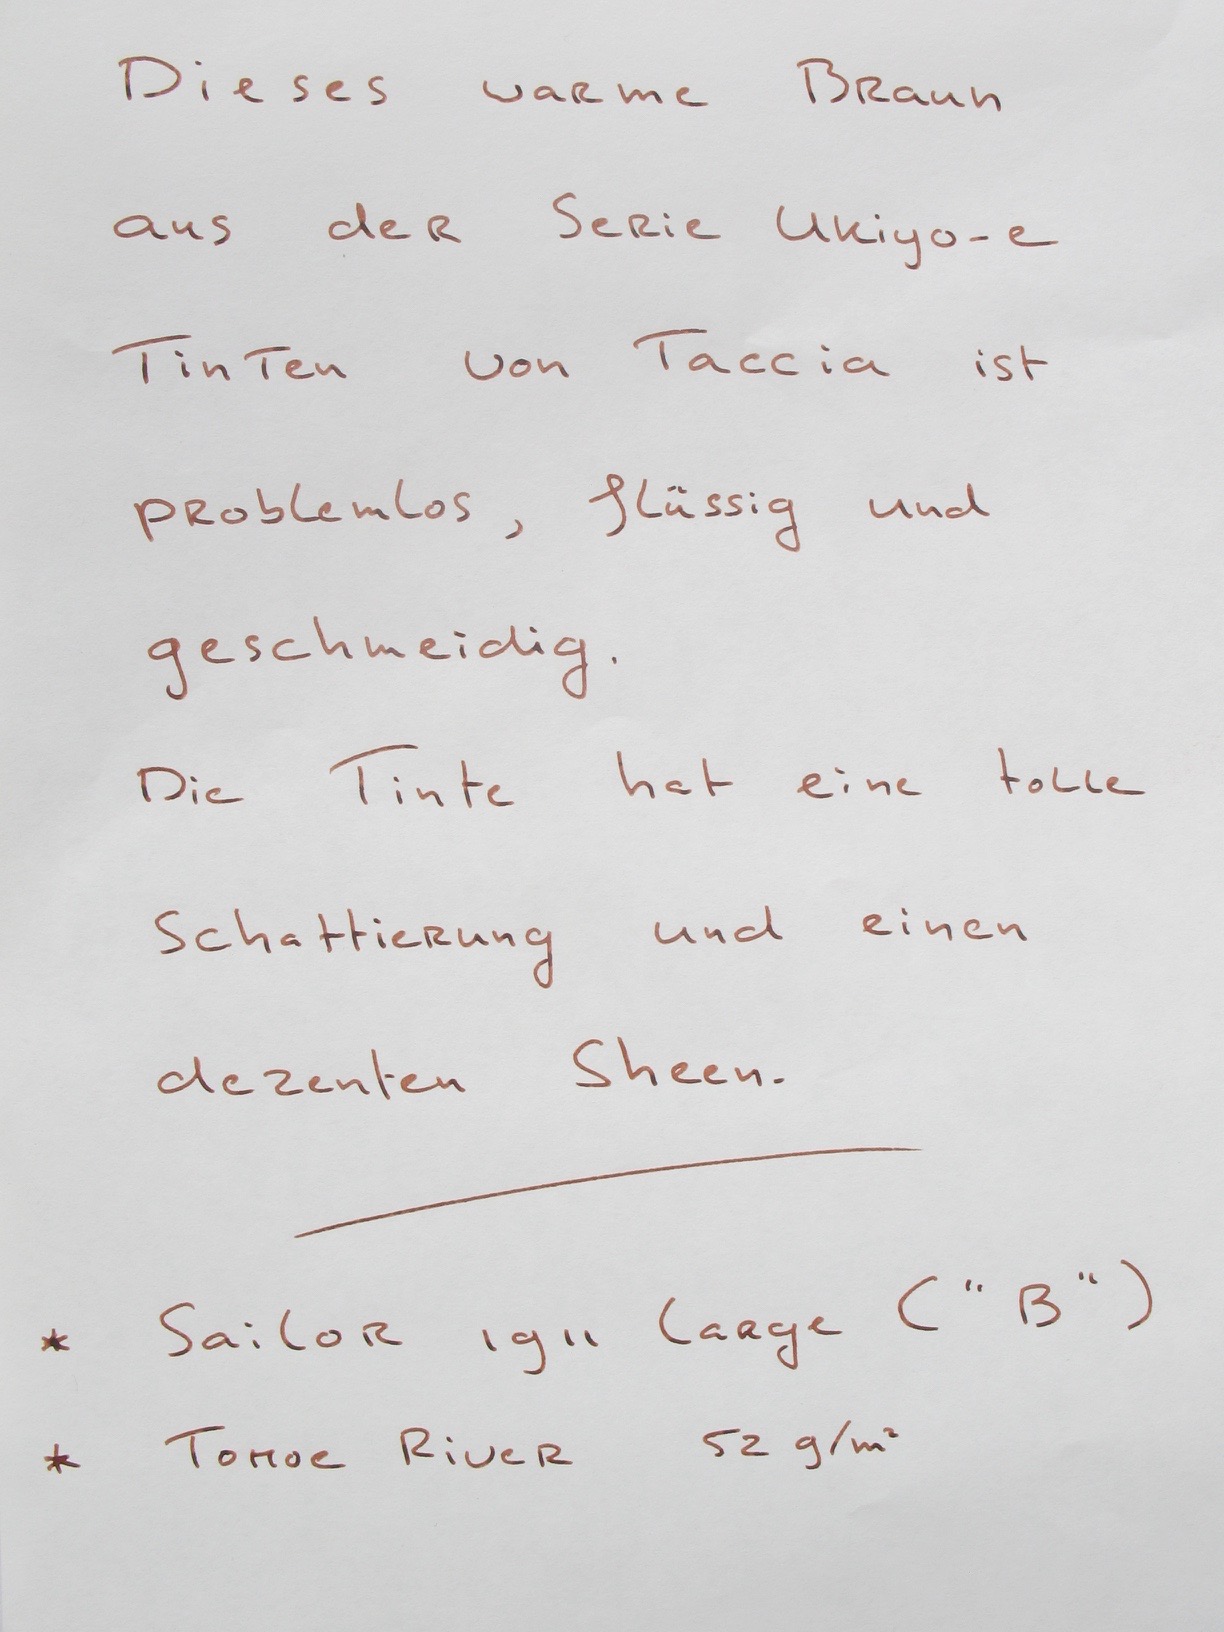 Dieses warme Braun
aus der Serie Ukiyo-e
Tinten von Taccia ist
problemlos, flüssig und
geschmeidig.
Die Tinte hat eine tolle
Schattierung und einen
dezenten Sheen.
* Sailor 1911 Large ("B")
* Tomoe River 52 g/m²